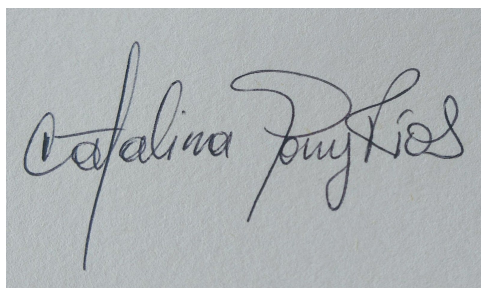 Catalina Pony Rios